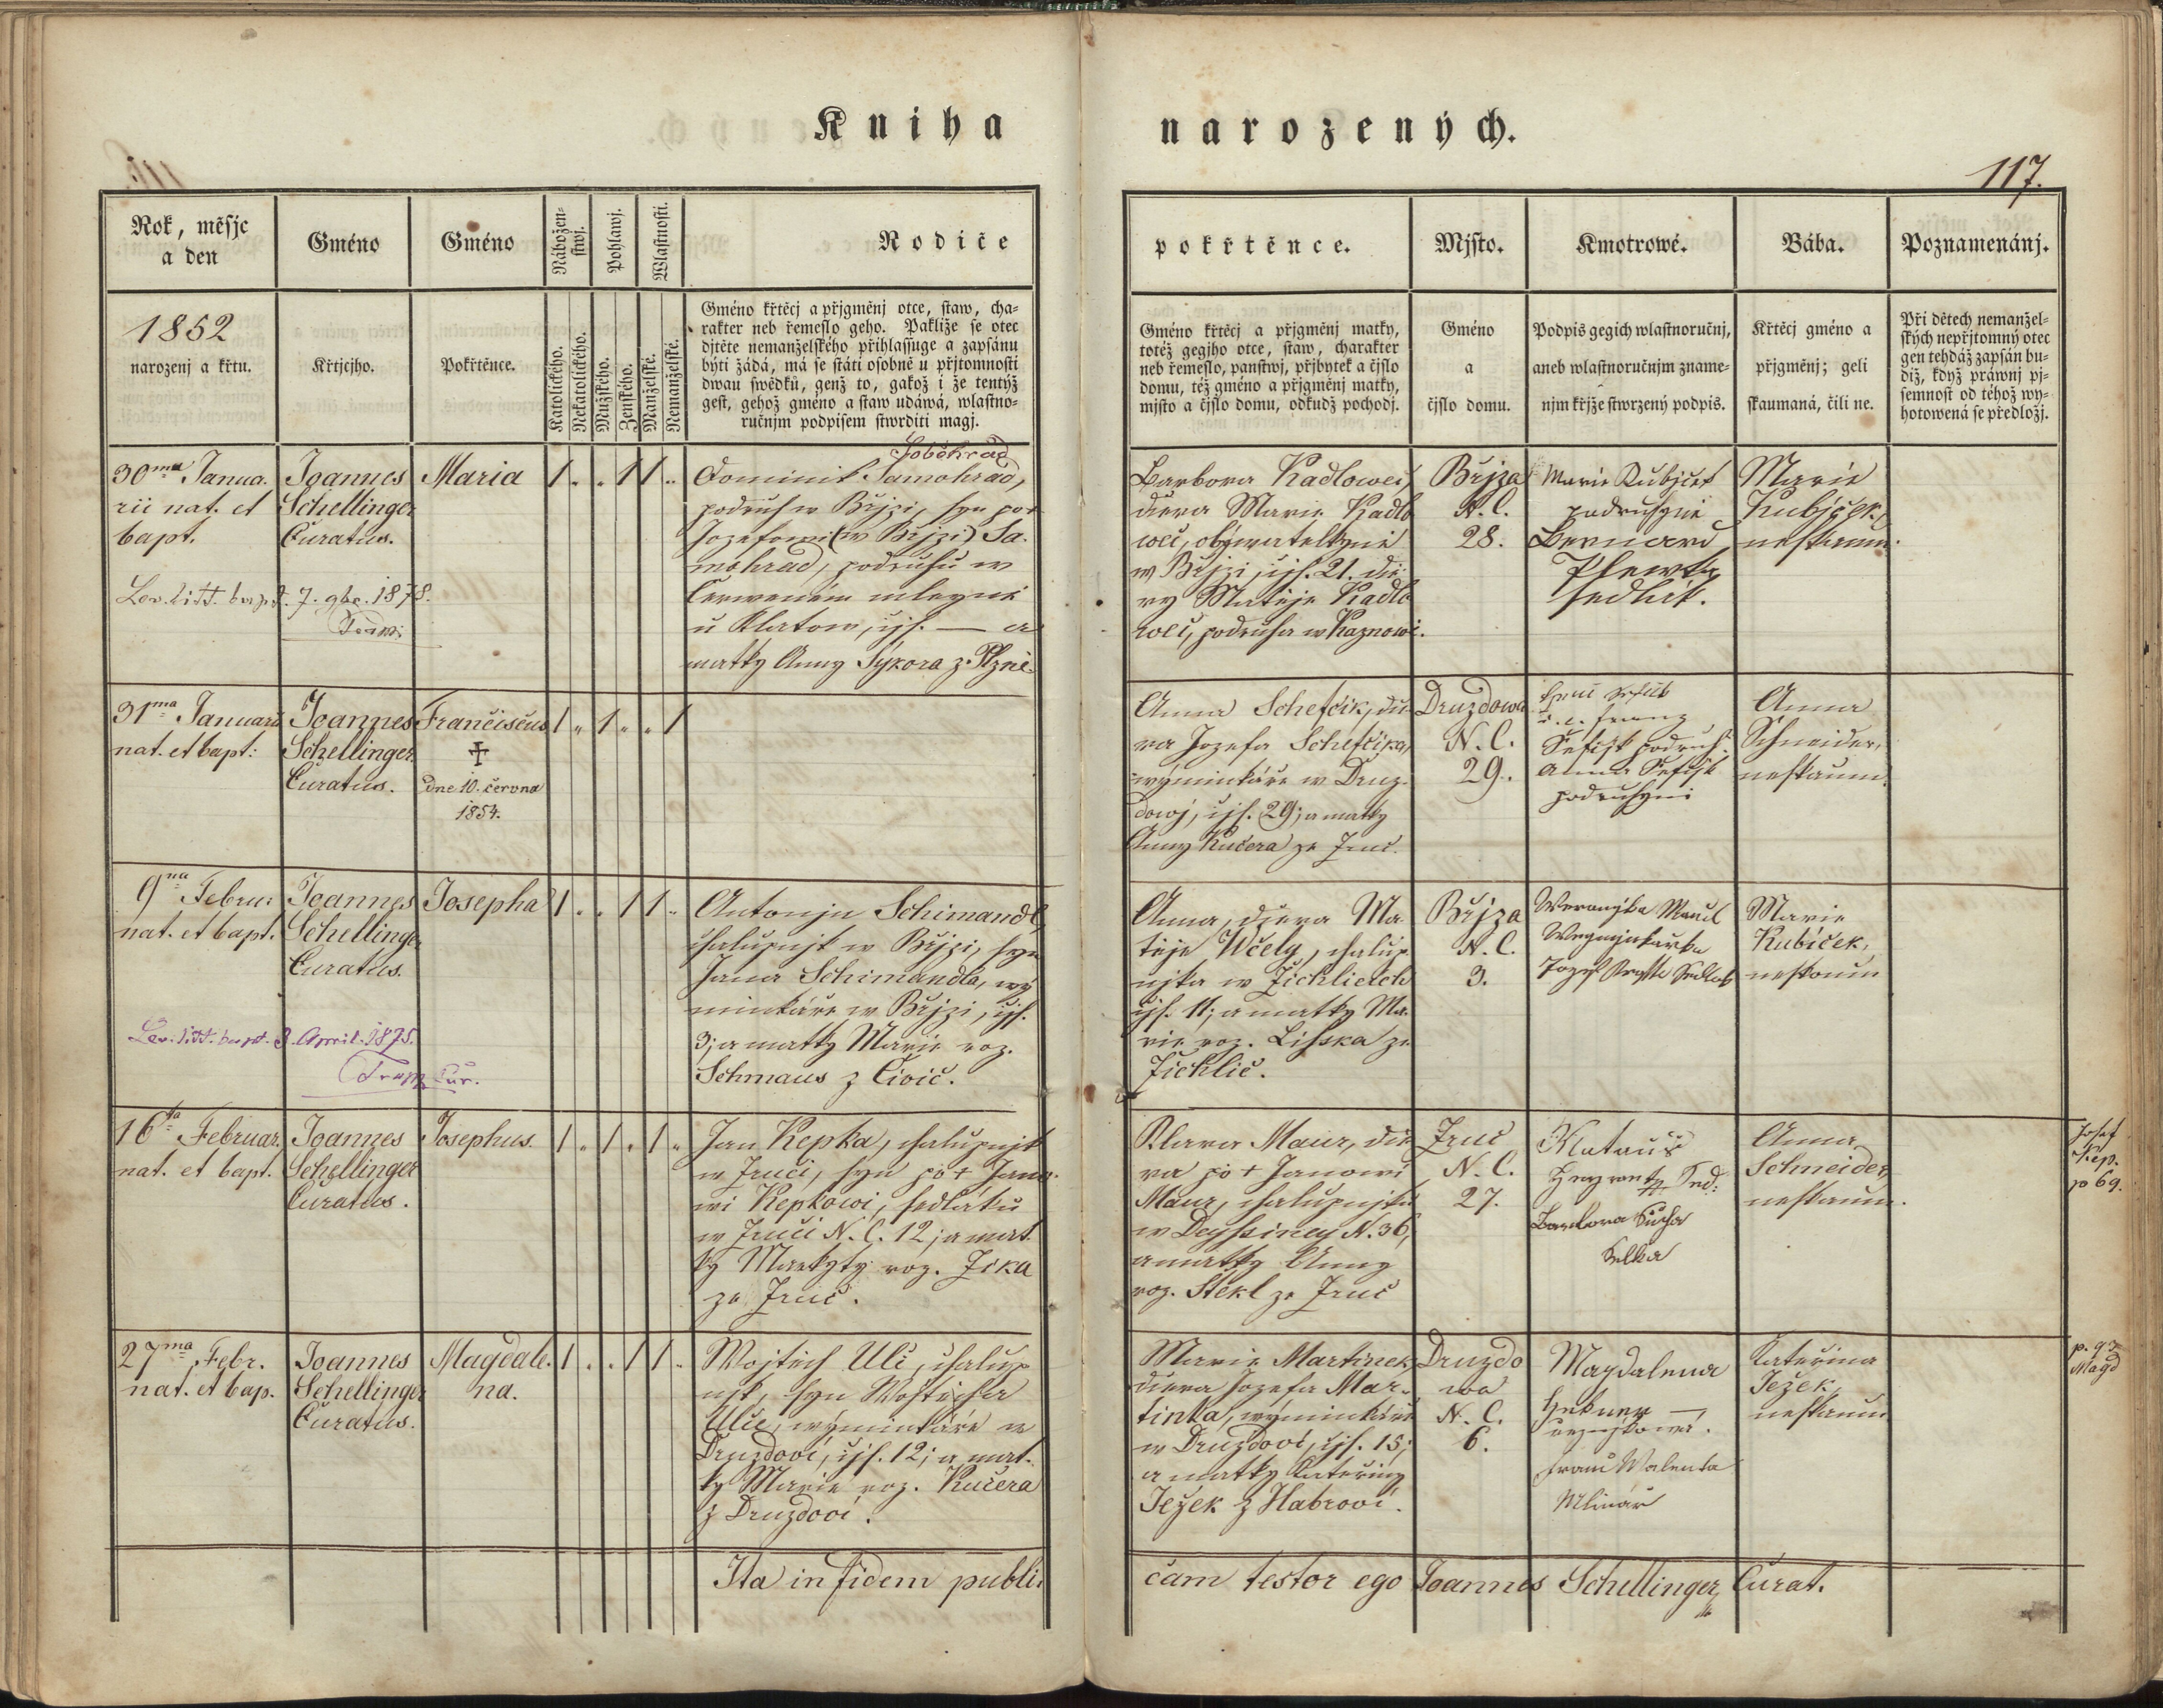 Kniha
narozených.
117.
Rok, měsjc
a den
Gméno
Gméno
Nábožen-
stwj.
Pohlawj.
Wlastnosti.
Rodiče
1852
narozenj a křtu.
Křtjcjho.
Pokřtěnce.
Katolického.
Nekatolického.
Mužského.
Ženského.
Manželské.
Nemanželské.
Gméno křtěcj a přjgměnj otce, staw, cha-
rakter neb řemeslo geho. Pakliže se otec
djtěte nemanželského přihlassuge a zapsánu
býti žádá, má se státi osobně u přjtomnosti
dwau swědků, genž to, gakož i že tentýž
gest, gehož gméno a staw udáwá, wlastno-
ručnjm podpisem stwrditi magj.
30ma Janua.
rii nat. et
bapt.
Joannes
Schellinger
Curatus.
Maria
1 . . 1 1 ..
Soběhrad
Dominik Samohrad,
podruh w Břjzi, syn po +
Jozefowi (w Břjzi) Sa.
mohrad, podruhu w
Čerweném mlegně
u Klatow, čjs. — a
matky Anny Sýkora z Plzně.
Lev. litt. bapt. 7. 9br. 1878.
31ma Januarii
nat. et bapt:
Joannes
Schellinger
Curatus.
Franciscus
dne 10. června
1854.
1 .. 1 . . 1
9na Febru:
nat. et bapt.
Joannes
Schellinger
Curatus.
Josepha
1 . . 1 1 ..
Antonjn Schimandl,
chalupnjk w Břjzi, syn
Jana Schimandla, wý
minkáře w Břjzi, čjs.
3; a matky Marie roz.
Schmaus z Čivic.
Lev. litt. bapt. 3. April. 1875.
Cur.
16ta Februar.
nat. et bapt.
Joannes
Schellinger
Curatus.
Josephus.
1 . 1 . 1 ..
Jan Kepka, chalupnjk
w Zruči, syn po + Jano.
wi Kepkowi, sedláku
w Zruči N. C. 12; a mat
ky Markyty roz. Zika
ze Zruč.
27ma Febr.
nat. et bap.
Joannes
Schellinger
Curatus.
Magdale.
na.
1 . . 1 1 ..
Wojtěch Ulč, chalup
njk, syn Wojtěcha
Ulče, wýminkáře w
Druzdowi, čjs. 12; a mat.
ky Marie roz. Kučera
z Druzdowi.
Ita in fidem publi.
pokřtěnce.
Mjsto.
Kmotrowé.
Bába.
Poznamenánj.
Gméno křtěcj a přjgměnj matky,
totéž gegjho otce, staw, charakter
neb řemeslo, panstwj, přjbytek a čjslo
domu, též gméno a přjgměnj matky,
mjsto a čjslo domu, odkudž pocházj.
Gméno
a
čjslo domu.
Podpis gegich wlastnoručnj,
aneb wlastnoručnjm zname-
njm křjže stwrzený podpis.
Křtěcj gméno a
přjgměnj; geli
skaumaná, čili ne.
Při dětech nemanžel-
ských nepřjtomný otec
gen tehdáž zapsán bu-
diž, když práwnj pj-
semnost od téhož wy-
hotowená se předložj.
Barbora Kadlowec,
dcera Marie Kadlo
wec, obýwatelkyně
w Břjzi, čjs. 21. dce
ry Matěje Kadlo
wec, podruha w Kaznowě.
Břjza
N. C.
28.
Marie Kubjček
podruhyně
Bernard
Plewka
sedlák.
Marie
Kubjček,
neskaum.
Anna Schefčik, dce
ra Jozefa Schefčika,
wýminkáře w Druz.
dowj, čjs. 29; a matky
Anny Kučera ze Zruč.
Druzdowa
N. C.
29.
Šefčjk podruh.
Anna Šefčjk
podruhyně
Anna
Schneider,
neskaum.
Anna, dcera Ma
těje Wčely, chalup
njka w Žichlicech
čjs. 11; a matky Ma.
rie roz. Lisska ze
Žichlic.
Břjza
N. C.
3.
Marie
Kubiček,
neskoum
Klara Maur, dce
ra po + Janowi
Maur, chalupnjku
w Deyssiney N. 36,
a matky Anny
roz. Stekl ze Zruč
Zruč
N. C.
27.
Mataus
Barbora Sucha
Selka
Anna
Schneider,
neskaum.
Josef
Kep.
po 69.
Marie Martinek,
dcera Jozefa Mar.
tinka, wýminkáře
w Druzdowi, čjs. 15;
a matky Kateřiny
Ježek z Habrowi.
Druzdo
wa
N. C.
6.
Magdalena
Franc Walenta
Mlinář
Kateřina
Ježek,
neskaum
p. 93
Magd
cam testor ego Joannes Schellinger, Curat.